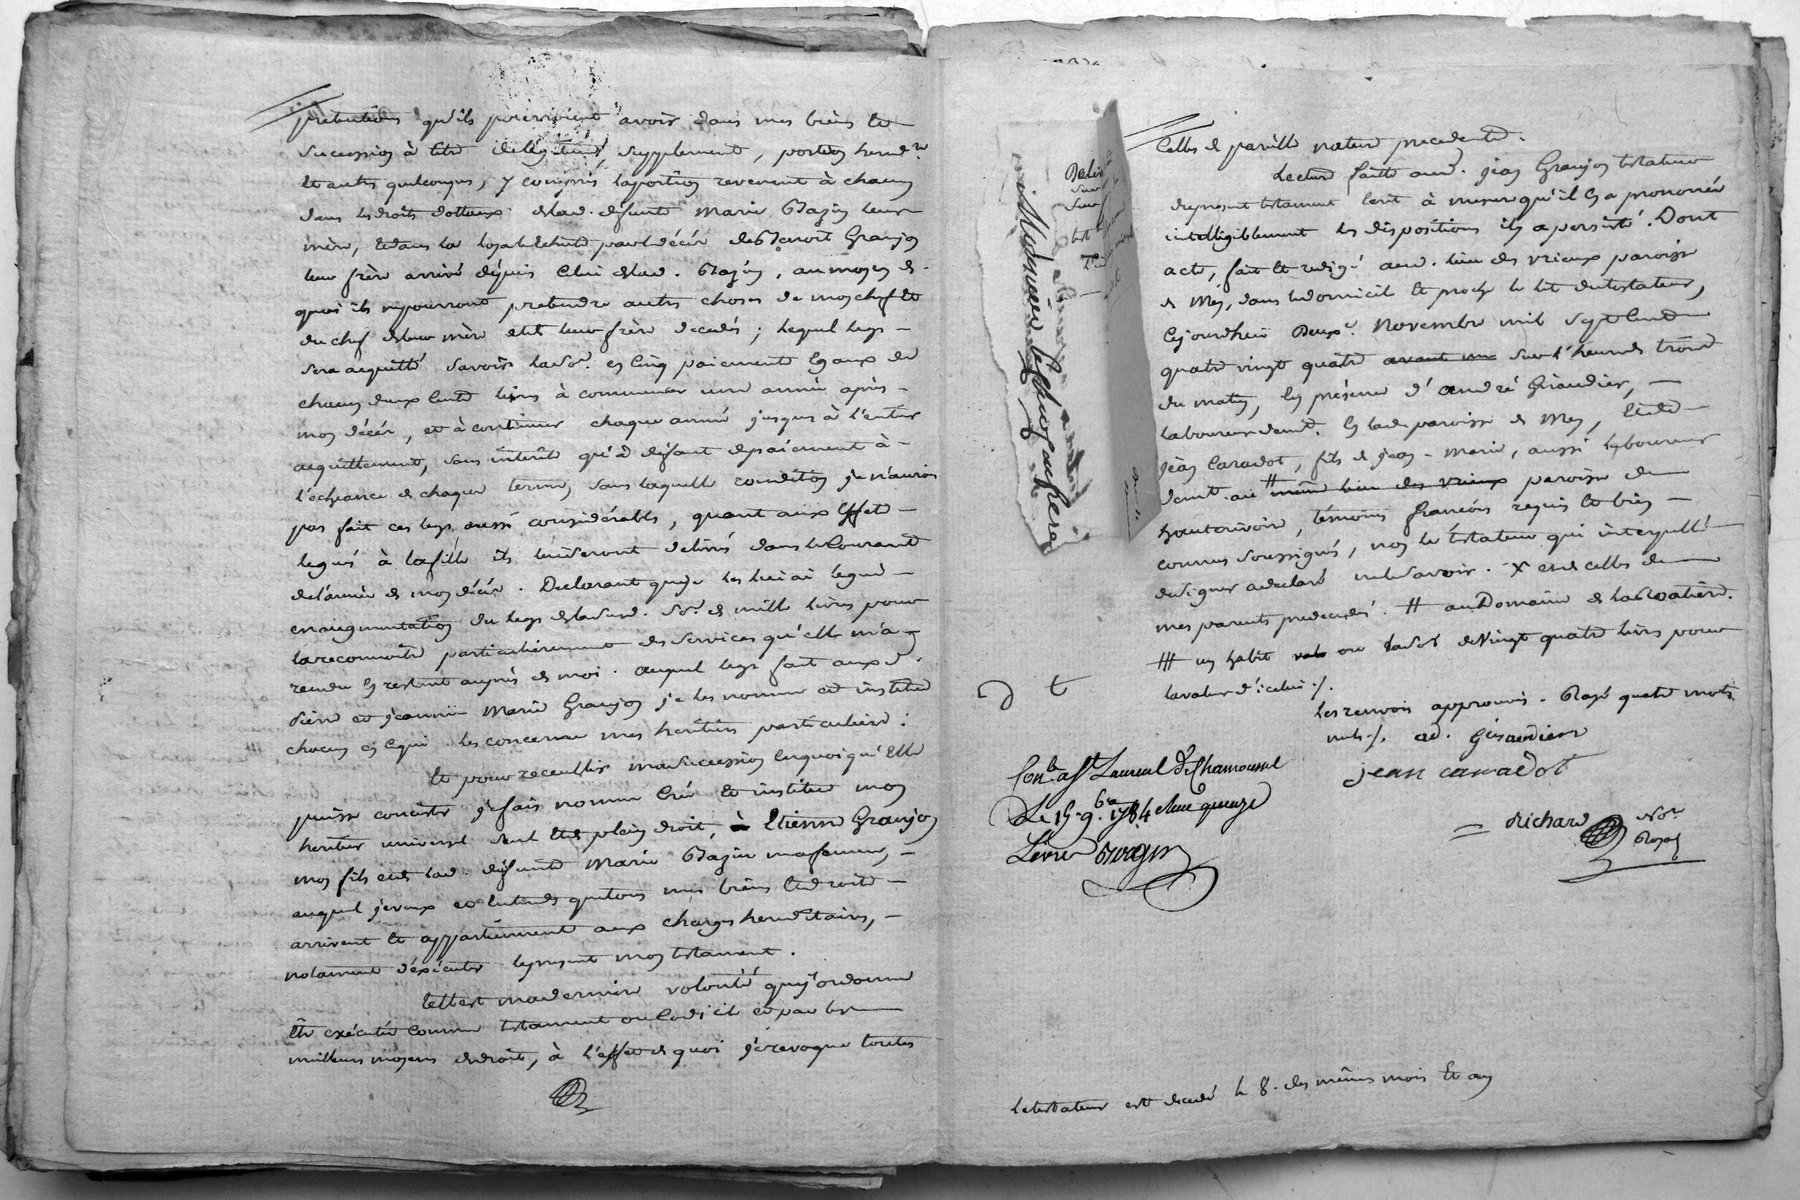 pretentions qu'ils pourroient avoir dans mes biens et
sucession à titre de legitime, supplement, portion hered.re
et autre quelconque, y compris la portion revenant à chacun
dans les droits dotteaux de lad. défunte Marie Bazin leur
mère, et dans la loyale échute par le décés de Benoit Granjon
leur frère arrivé dépuis celui de lad. Bazin, au moyen de
quoi ils ne pourront pretendre autre chose de mon chef et
du chef de leur mère et de leur frère decedés; lequel legs
sera acquitté savoir lad. so.e en cinq paiements egaux de
chacun deux cents livres à commencer une année après
mon décés, et à continuer chaque année jusques à l'entier
acquittement, sans interêts qu'à défaut de paiement à
l'echeance de chaque terme, sans laquelle condition je n'aurois
pas fait ces legs aussi considérables, quant aux effets
legués à la fille ils lui seront delivrés dans le courant
de l'année de mon décés. Declarant que je les lui ai legué
en augmentation du legs de lad. so.e de mille livres pour
la reconnoitre particulièrement des services qu'elle m'a
rendu en restant auprès de moi. auquel legs fait aux d.
Pierre et jeanne Marie Granjon je les nomme et institue
chacun en ce qui les concerne mes heritiers particuliers.
Et pour recueillir ma succession en quoi qu'elle
puisse consister je fais nomme crée et institue mon
heritier universel seul et de plein droit, Etienne Granjon
mon fils et de lad. défunte Marie Bazin ma femme,
auquel je veux et entends que tous mes biens et droits
arrivent et appartiennent aux charges hereditaires,
notament d'éxécuter le present mon testament.
telle est ma dernière volonté que j'ordonne
être exécutée comme testament ou codicile et par les
meilleurs moyens de droit, à l'effet de quoi je revoque toutes
celles de pareille nature precedente.
Lecture faitte aud. jean Granjon testateur
du present testament ecrit à mesure qu'il en a prononcé
intelligiblement les dispositions il y a persisté. Dont
acte, fait et redigé aud. lieu des vrieux paroisse
de Mey, dans le domicile et proche le lit du testateur,
Cejourdhui Deux.e Novembre mil sept cent
quatre vingt quatre sur l'heure de trois
du matin, en présence d'andré Giraudier,
laboureur demt. en lad. paroisse de Mey, et de
jean Caradot, fils de jean-marie, aussi laboureur
demt. au # même lieu des vrieux paroisse de
hauterivoire, témoins francois requis et bien
connus soussignés, non le testateur qui interpellé
de signer a declaré ne le savoir. x et de celles de
mes parents predecedés. # au Domaine de la Roatière.
## un habit ou la so.e de Vingt quatre livres pour
la valeur d'icelui ./.
les renvois approuvés. Rayé quatre mots
nuls ./. ad. Giraudier
jean caradot
Richard No.re
Royal
Con.lé a St Laurent De Chamousset
Le 15 9.bre 1784 Reçu quinze
Livres
Le testateur est decedé le 8. des mêmes mois et an